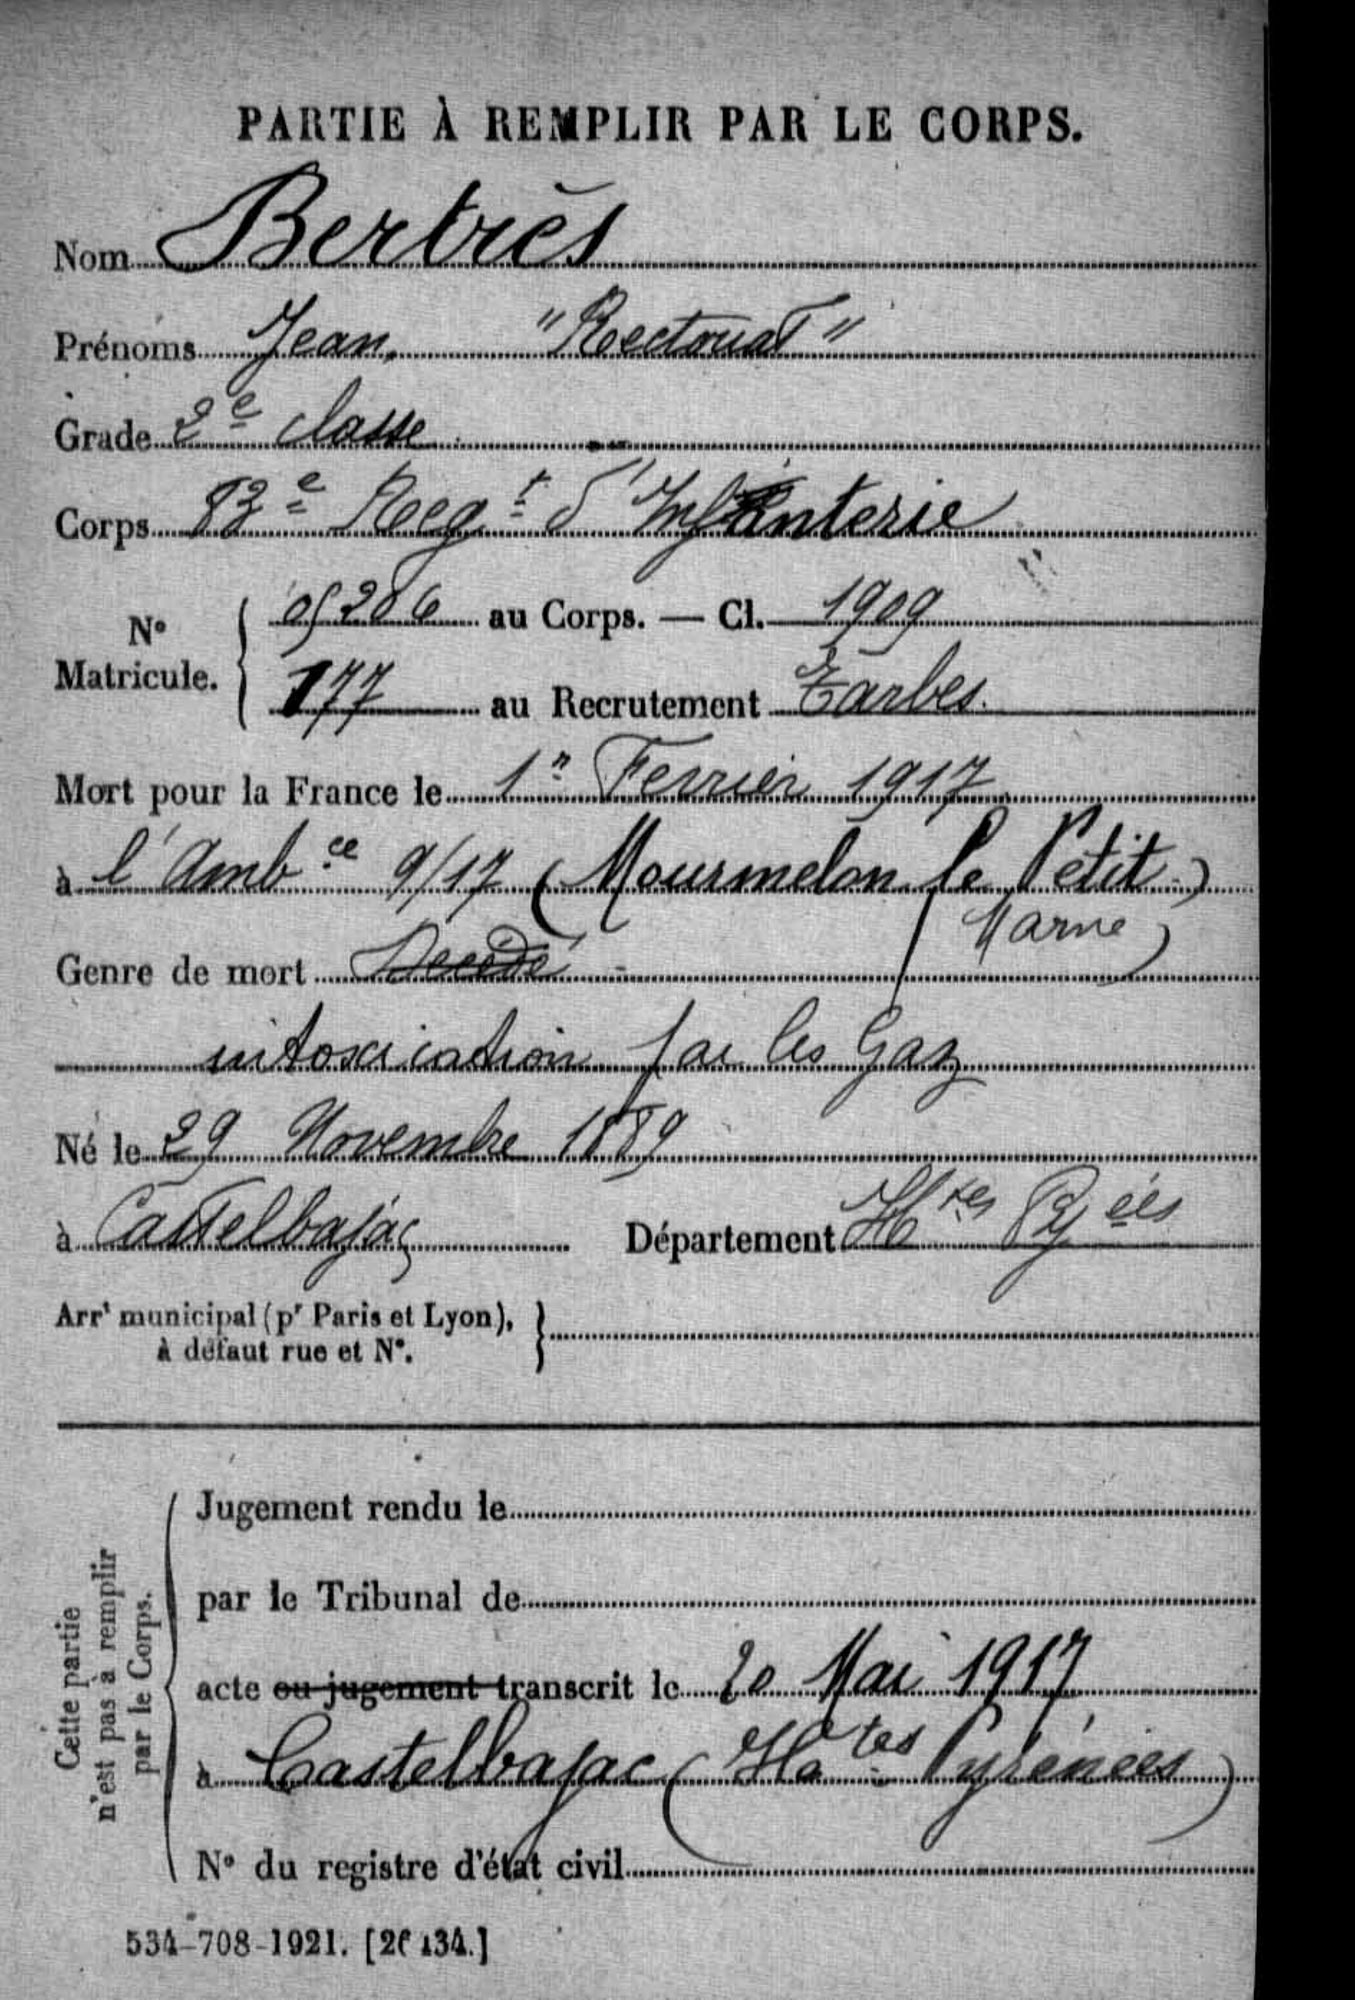 PARTIE À REMPLIR PAR LE CORPS.
Nom Bertrès
Prénoms Jean, "Rectouat"
Grade 2e classe
Corps 83e Regt d'Infanterie
No Matricule. 05206 au Corps. — Cl. 1909
177 au Recrutement Tarbes.
Mort pour la France le 1r Fevrier 1917
à l'Ambce 9/17 (Mourmelon le Petit)
Marne)
Genre de mort Décédé
intoxication par les Gaz
Né le 29 Novembre 1889
à Castelbajac Département Htes Pyées
Arrt municipal (pr Paris et Lyon),
à défaut rue et No.
Jugement rendu le
par le Tribunal de
acte ou jugement transcrit le 20 Mai 1917
à Castelbajac (Htes Pyrénées)
No du registre d'état civil
Cette partie
n'est pas à remplir
par le Corps.
534-708-1921. [26134.]